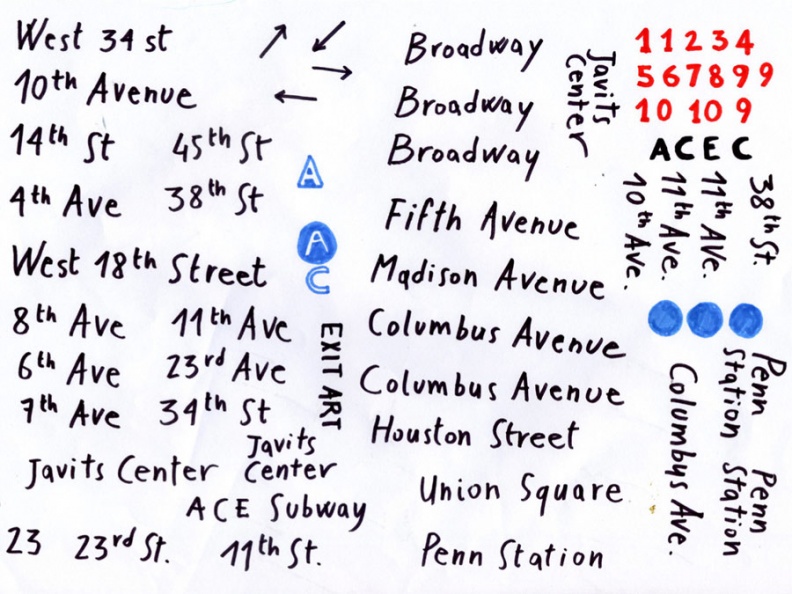 West 34 st
10th Avenue
14th St
45th St
4th Ave
38th St
West 18th Street
8th Ave
11th Ave
6th Ave
23rd Ave
7th Ave
34th St
Javits Center
Javits
Center
ACE Subway
23
23rd St.
11th St.
A
A
C
EXIT ART
Broadway
Broadway
Broadway
Fifth Avenue
Madison Avenue
Columbus Avenue
Columbus Avenue
Houston Street
Union Square
Penn Station
Javits
Center
1 1 2 3 4
5 6 7 8 9 9
10 10 9
A C E C
10th Ave.
11th Ave.
11th Ave.
38th St.
Columbys Ave.
Penn
Station
Penn
Station